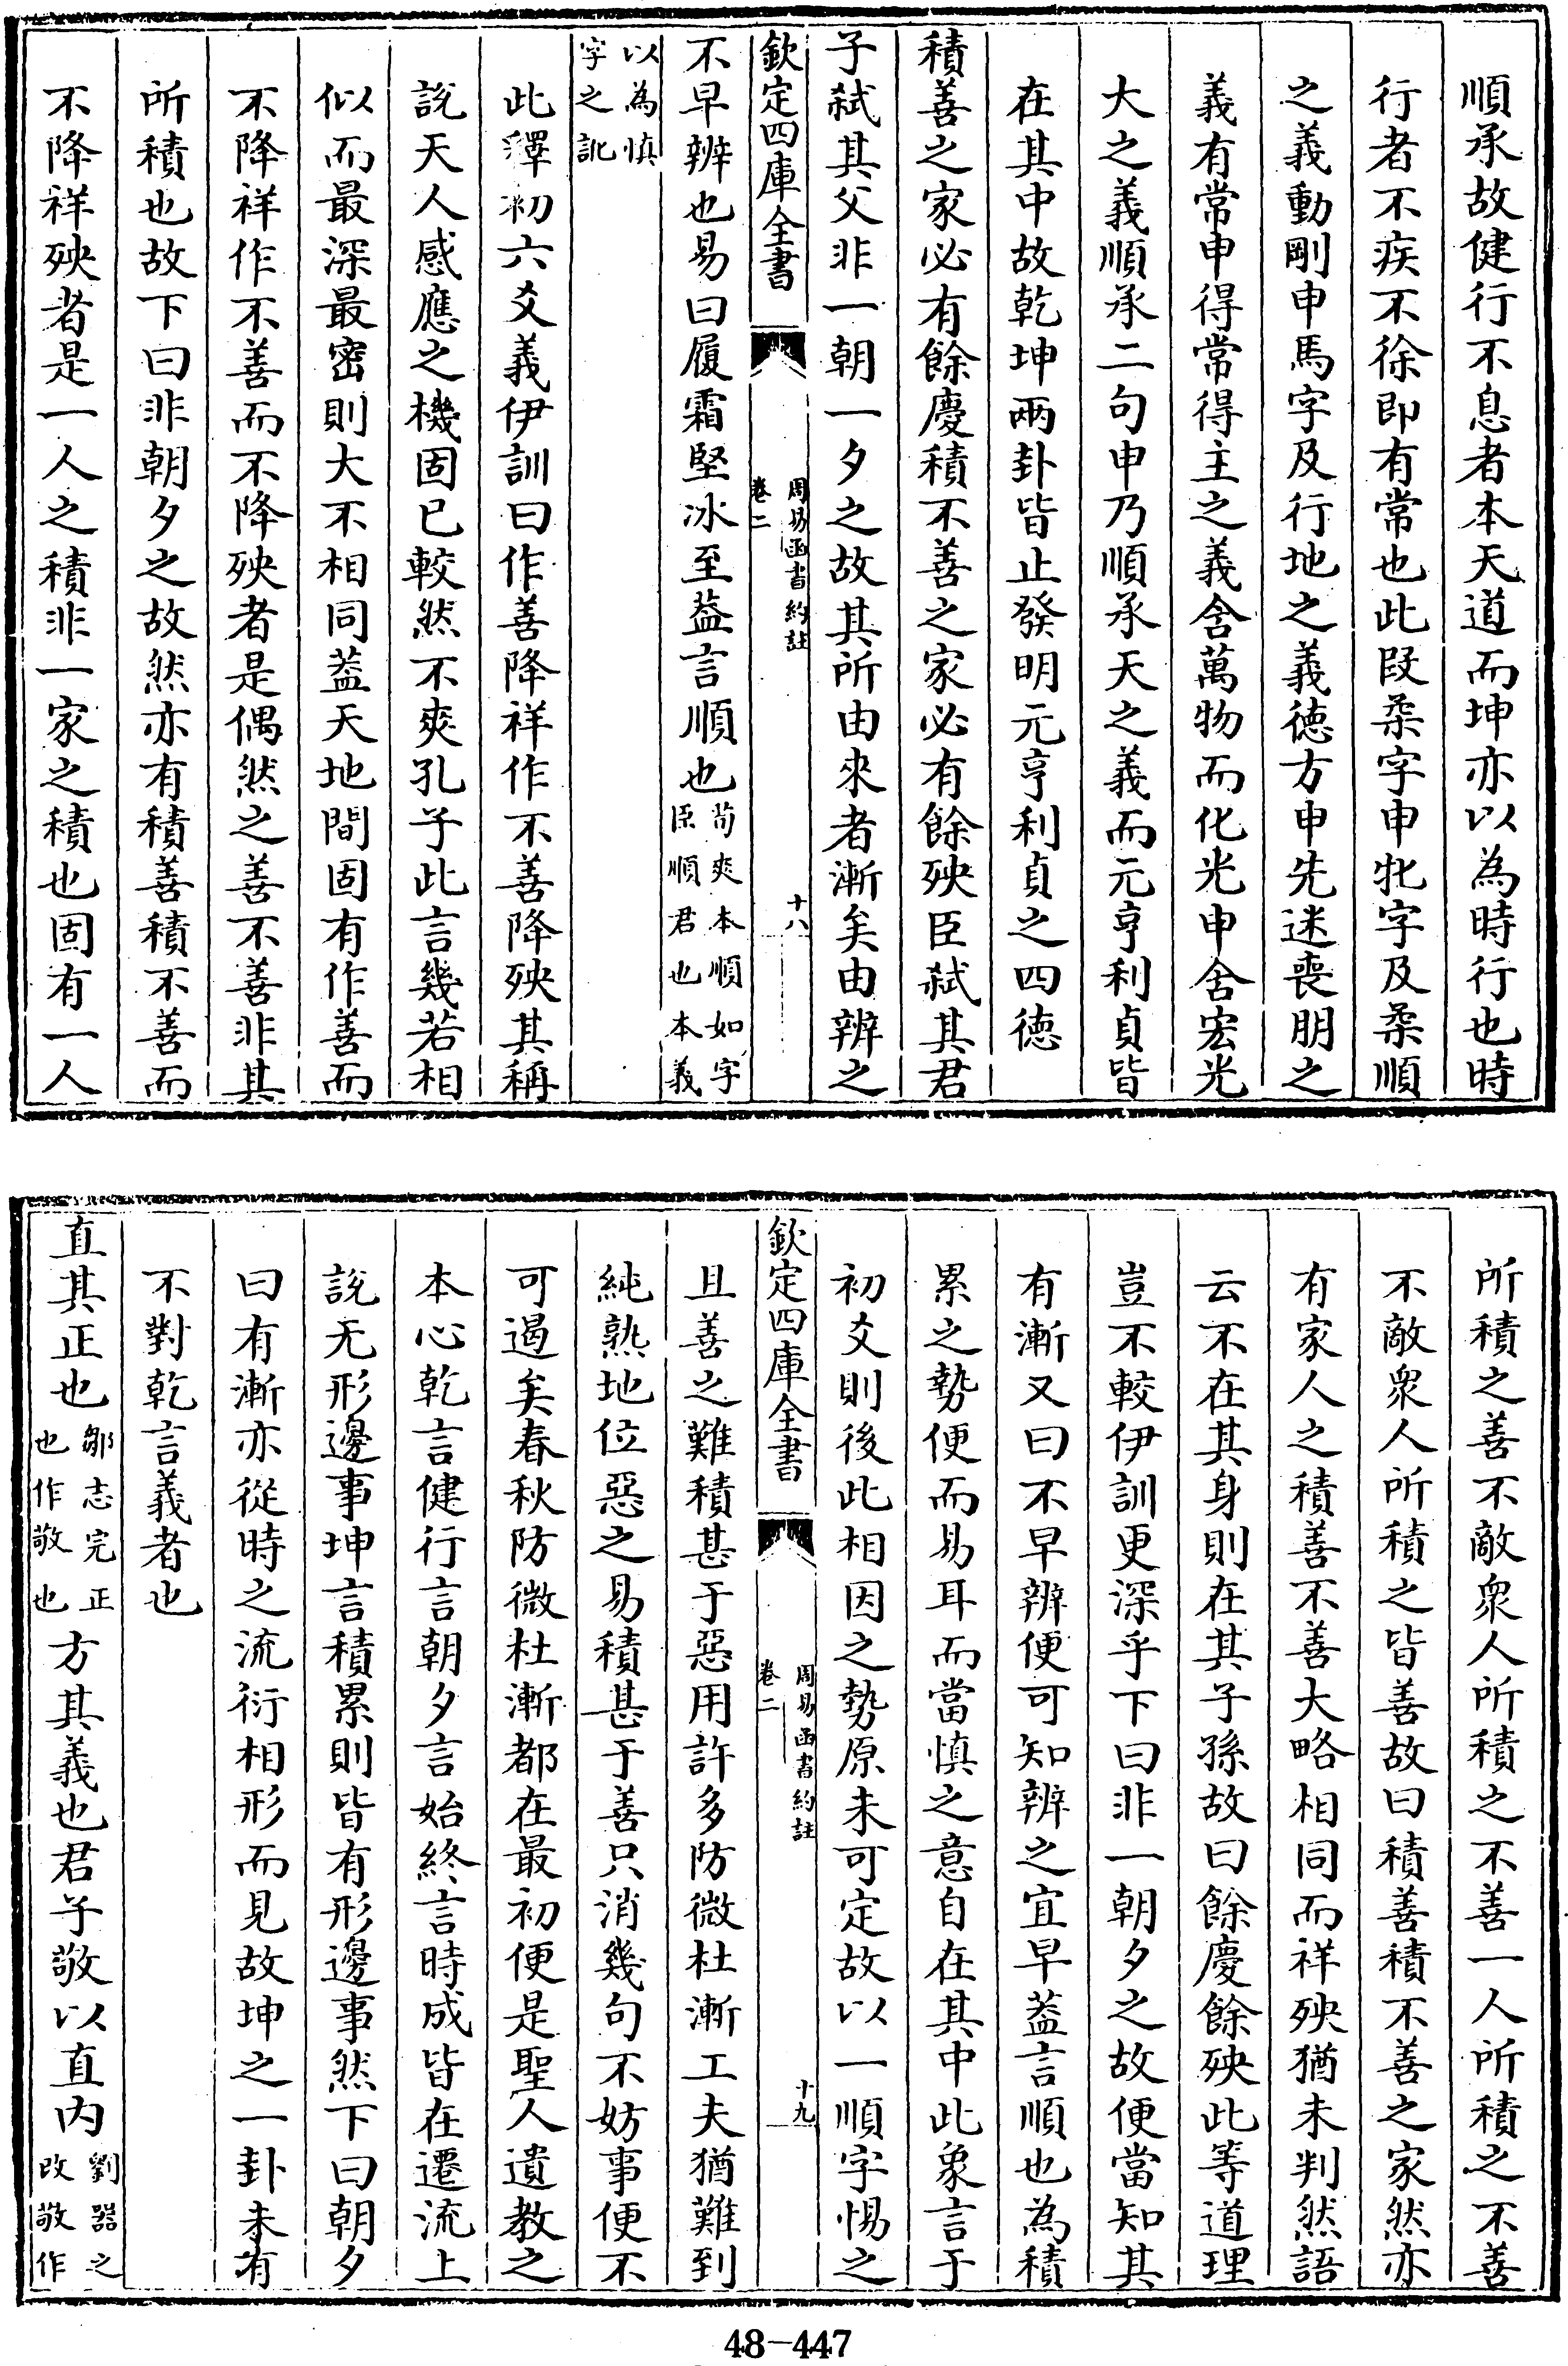 順承故健行不息者本天道而坤亦以為時行也時
行者不疾不徐即有常也此段柔字申牝字及柔順
之義動剛申馬字及行地之義德方申先迷喪朋之
義有常申得常得主之義含萬物而化光申含宏光
大之義順承二句申乃順承天之義而元亨利貞皆
在其中故乾坤兩卦皆止發明元亨利貞之四德
積善之家必有餘慶積不善之家必有餘殃臣弑其君
子弑其父非一朝一夕之故其所由來者漸矣由辨之
欽定四庫全書
周易函書約註
卷二
十八
不早辨也易曰履霜堅冰至葢言順也荀爽本順如字
臣順君也本義
以為慎
字之訛
此釋初六爻義伊訓曰作善降祥作不善降殃其稱
說天人感應之機固已較然不爽孔子此言幾若相
似而最深最密則大不相同葢天地間固有作善而
不降祥作不善而不降殃者是偶然之善不善非其
所積也故下曰非朝夕之故然亦有積善積不善而
不降祥殃者是一人之積非一家之積也固有一人
所積之善不敵衆人所積之不善一人所積之不善
不敵衆人所積之皆善故曰積善積不善之家然亦
有家人之積善不善大略相同而祥殃猶未判然語
云不在其身則在其子孫故曰餘慶餘殃此等道理
豈不較伊訓更深乎下曰非一朝夕之故便當知其
有漸又曰不早辨便可知辨之宜早葢言順也為積
累之勢便而易耳而當慎之意自在其中此象言于
初爻則後此相因之勢原未可定故以一順字惕之
欽定四庫全書
周易函書約註
卷二
十九
且善之難積甚于惡用許多防微杜漸工夫猶難到
純熟地位惡之易積甚于善只消幾句不妨事便不
可遏矣春秋防微杜漸都在最初便是聖人遺教之
本心乾言健行言朝夕言始終言時成皆在遷流上
說无形邊事坤言積累則皆有形邊事然下曰朝夕
曰有漸亦從時之流衍相形而見故坤之一卦未有
不對乾言義者也
直其正也鄒志完正
也作敬也方其義也君子敬以直內劉器之
改敬作
48-447